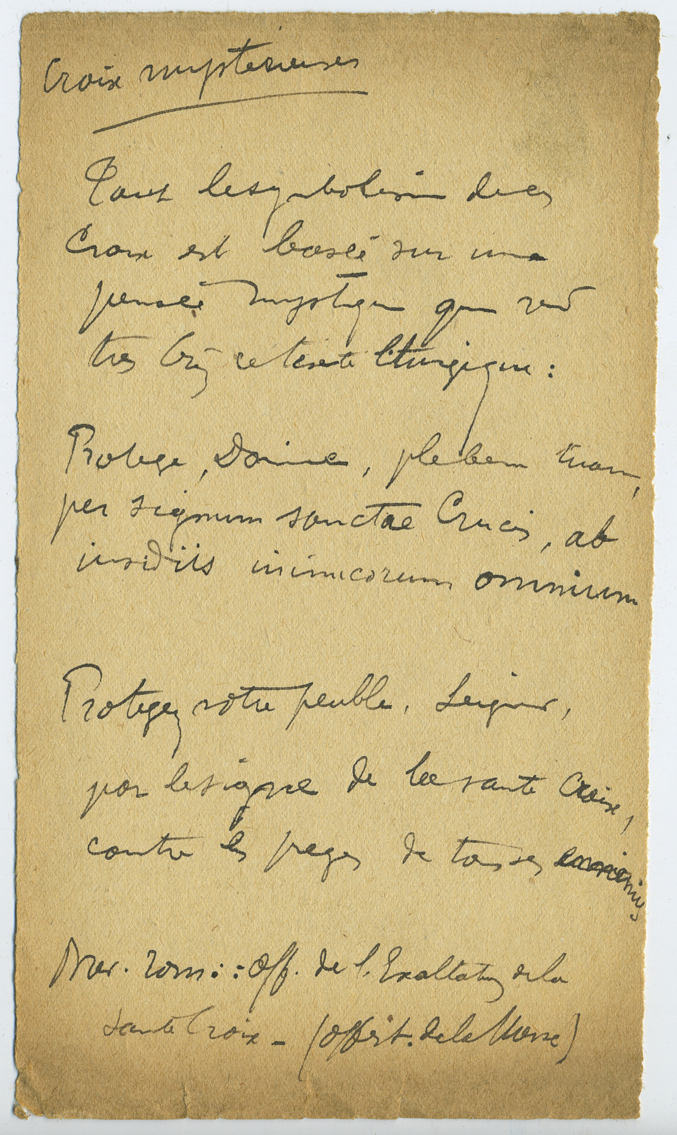 Croix mysterieuses
Tout le symbolisme de ces
Croix est basée sur une
pensée mystique que rend
tres bien ce texte liturgique :
Protege, Domine, plebem tuam,
per signum sanctae Crucis, ab
insidiis inimicorum omnium
Protegez votre peuble, Seigneur,
par le signe de la sainte Croix,
contre les pieges de tous ses ennemis
rom. : Off. de l'Exaltation de la
Sainte Croix - (offert. de la Messe)